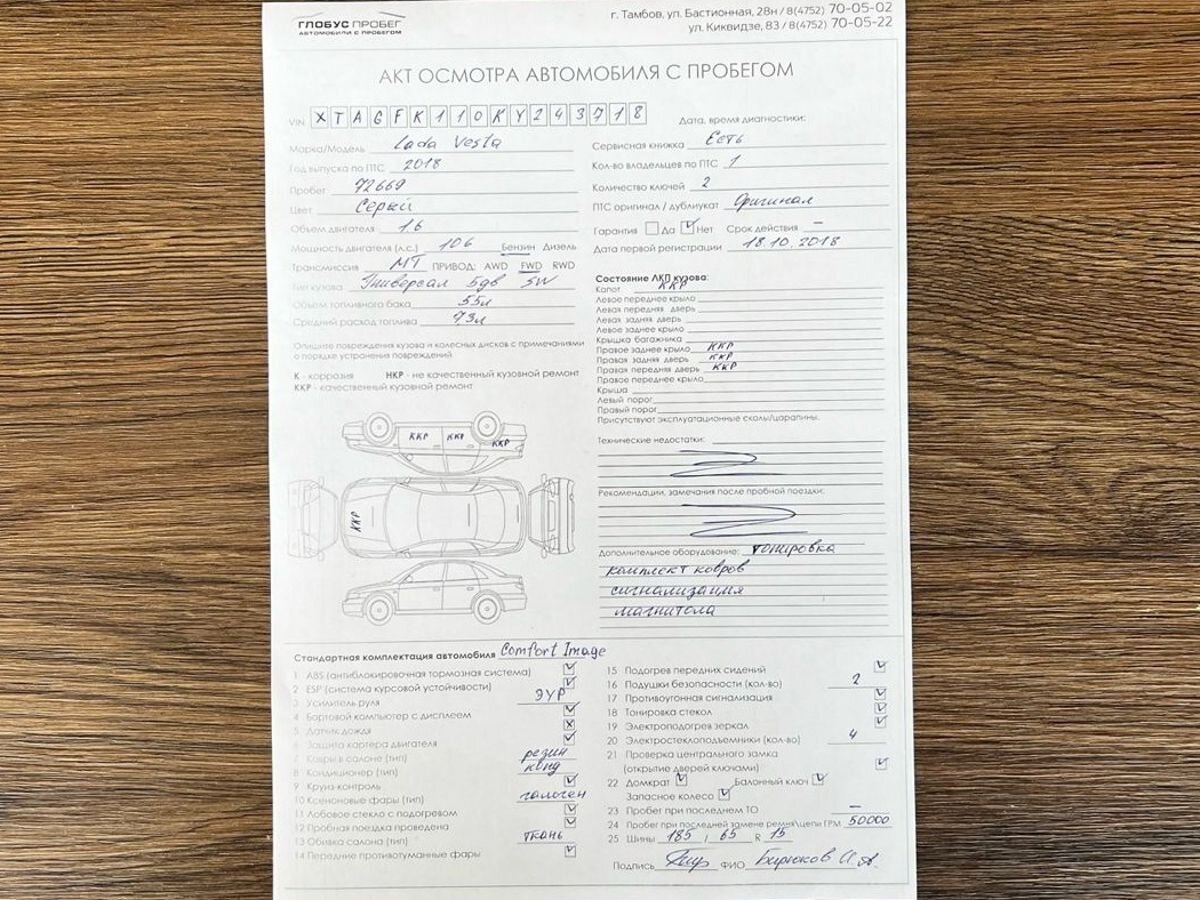 ГЛОБУС ПРОБЕГ
АВТОМОБИЛИ С ПРОБЕГОМ
г. Тамбов, ул. Бастионная, 28н / 8(4752) 70-05-02
ул. Киквидзе, 83 / 8(4752) 70-05-22
АКТ ОСМОТРА АВТОМОБИЛЯ С ПРОБЕГОМ
VIN XTAGFK110KY243718
Марка/Модель Lada Vesta
Год выпуска по ПТС 2018
Пробег 72669
Цвет Серый
Объем двигателя 1.6
Мощность двигателя (л.с.) 106 Бензин Дизель
Трансмиссия МТ ПРИВОД: AWD FWD RWD
Тип кузова Универсал 5дв SW
Объем топливного бака 55л
Средний расход топлива 7,3л
Опишите повреждения кузова и колесных дисков с примечаниями
о порядке устранения повреждений
К - коррозия НКР - не качественный кузовной ремонт
ККР - качественный кузовной ремонт
ККР ККР ККР
ККР
Дата, время диагностики:
Сервисная книжка Есть
Кол-во владельцев по ПТС 1
Количество ключей 2
ПТС оригинал / дубликат Оригинал
Гарантия Да Нет Срок действия –
Дата первой регистрации 18.10.2018
Состояние ЛКП кузова:
Капот ККР
Левое переднее крыло
Левая передняя дверь
Левая задняя дверь
Левое заднее крыло
Крышка багажника
Правое заднее крыло ККР
Правая задняя дверь ККР
Правая передняя дверь ККР
Правое переднее крыло
Крыша
Левый порог
Правый порог
Присутствуют эксплуатационные сколы/царапины.
Технические недостатки:
Рекомендации, замечания после пробной поездки:
Дополнительное оборудование: тонировка
комплект ковров
сигнализация
магнитола
Стандартная комплектация автомобиля Comfort Image
1 ABS (антиблокировочная тормозная система)
2 ESP (система курсовой устойчивости)
3 Усилитель руля ЭУР
4 Бортовой компьютер с дисплеем
5 Датчик дождя
6 Защита картера двигателя
7 Ковры в салоне (тип) резин
8 Кондиционер (тип) конд
9 Круиз-контроль
10 Ксеноновые фары (тип) галоген
11 Лобовое стекло с подогревом
12 Пробная поездка проведена
13 Обивка салона (тип) ткань
14 Передние противотуманные фары
15 Подогрев передних сидений
16 Подушки безопасности (кол-во) 2
17 Противоугонная сигнализация
18 Тонировка стекол
19 Электроподогрев зеркал
20 Электростеклоподъемники (кол-во) 4
21 Проверка центрального замка
(открытие дверей ключами)
22 Домкрат Балонный ключ
Запасное колесо
23 Пробег при последнем ТО –
24 Пробег при последней замене ремня\цепи ГРМ 50000
25 Шины 185 / 65 R 15
Подпись ФИО Бирюков И.А.